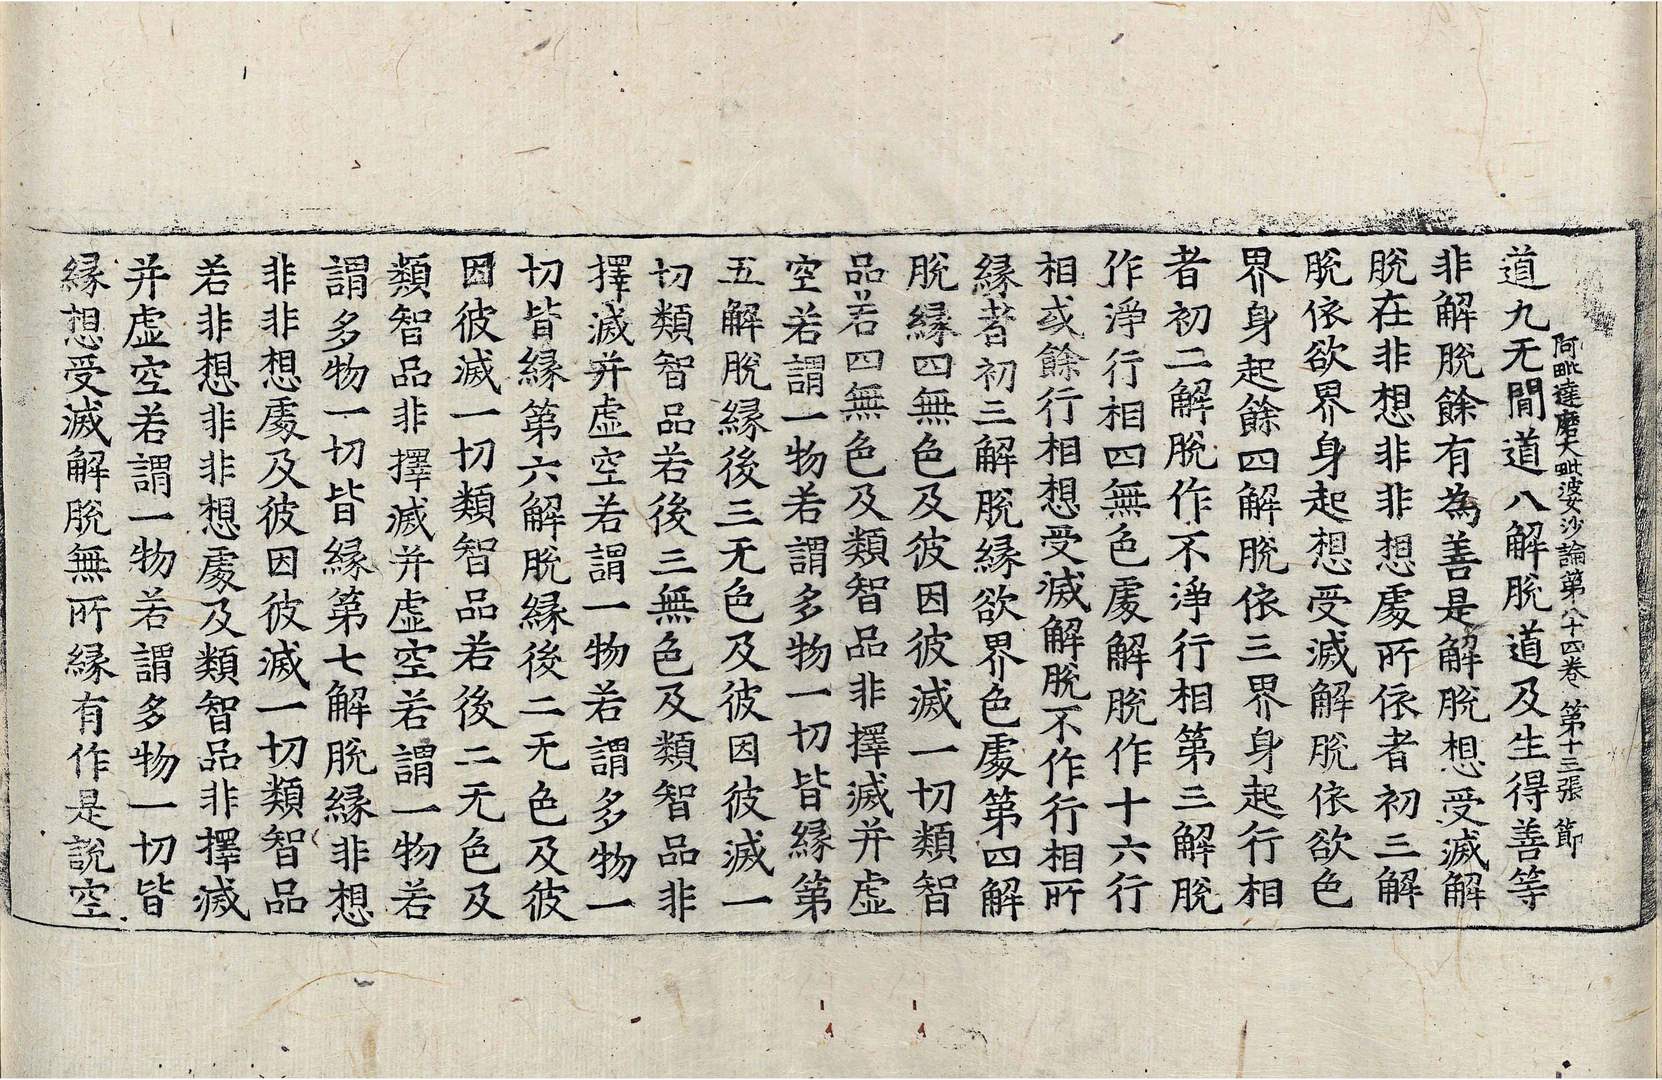 阿毗達磨大毗婆沙論第八十四卷 第十三張 節
道九无閒道八解脫道及生得善等
非解脫餘有為善是解脫想受滅解
脫在非想非非想處所依者初三解
脫依欲界身起想受滅解脫依欲色
界身起餘四解脫依三界身起行相
者初二解脫作不淨行相第三解脫
作淨行相四無色處解脫作十六行
相或餘行相想受滅解脫不作行相所
緣者初三解脫緣欲界色處第四解
脫緣四無色及彼因彼滅一切類智
品若四無色及類智品非擇滅并虛
空若謂一物若謂多物一切皆緣第
五解脫緣後三无色及彼因彼滅一
切類智品若後三無色及類智品非
擇滅并虛空若謂一物若謂多物一
切皆緣第六解脫緣後二无色及彼
因彼滅一切類智品若後二无色及
類智品非擇滅并虛空若謂一物若
謂多物一切皆緣第七解脫緣非想
非非想處及彼因彼滅一切類智品
若非想非非想處及類智品非擇滅
并虛空若謂一物若謂多物一切皆
緣想受滅解脫無所緣有作是說空